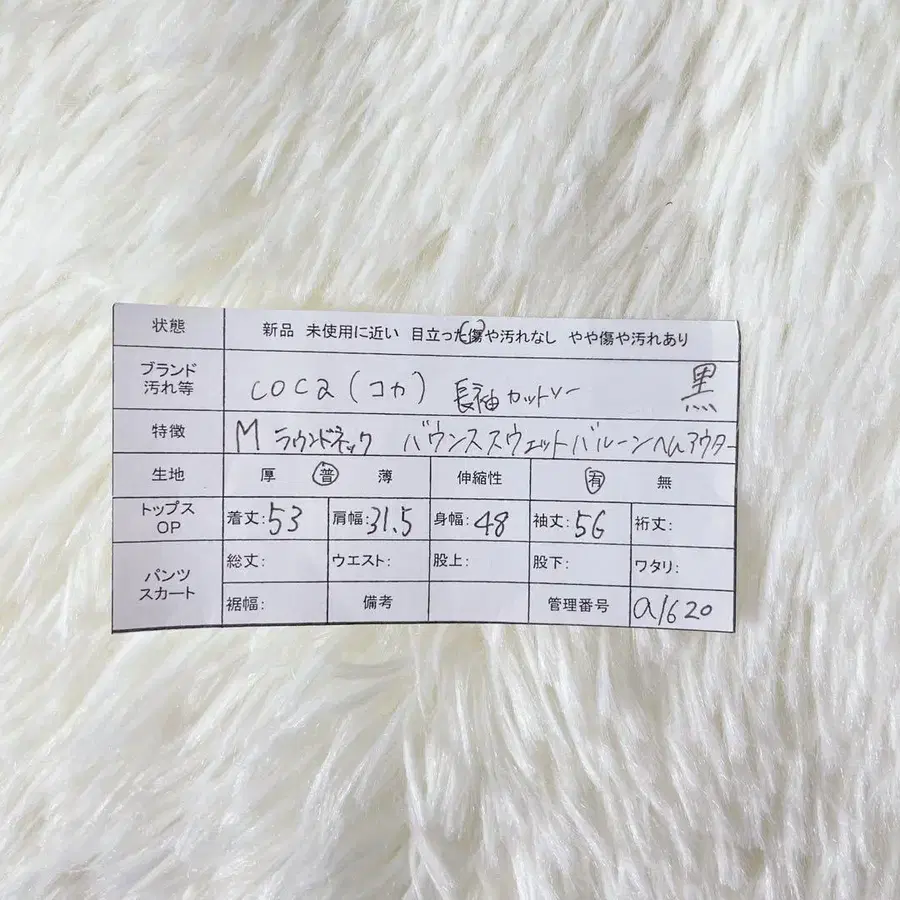 状態 新品 未使用に近い 目立った傷や汚れなし やや傷や汚れあり
ブランド
汚れ等 coca(コカ) 長袖カットソー 黒
特徴 M ラウンドネック バウンススウェットバルーンヘムアウター
生地 厚 普 薄 伸縮性 有 無
トップス
OP 着丈:53 肩幅:31.5 身幅:48 袖丈:56 裄丈:
パンツ
スカート 総丈: ウエスト: 股上: 股下: ワタリ:
裾幅: 備考 管理番号 a1620